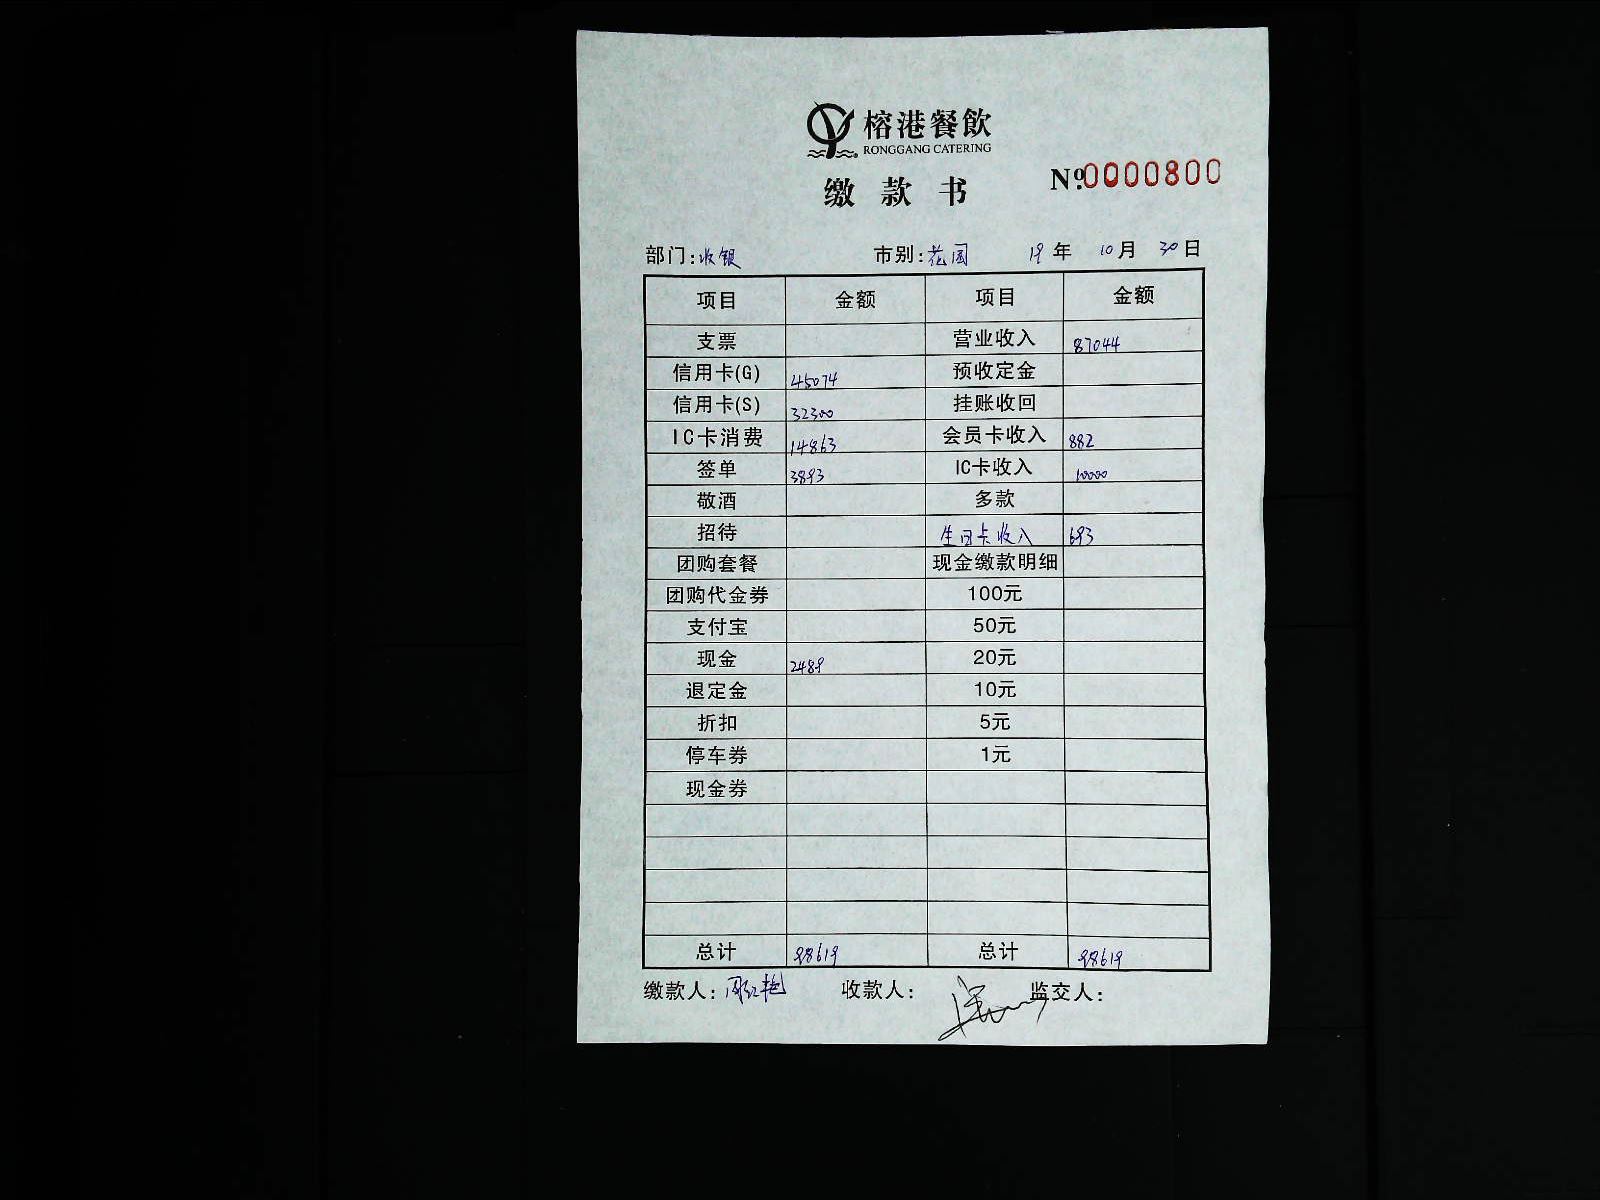 榕港餐飲
RONGGANG CATERING
缴款书 №0000800
部门:收银 市别:花园 19年 10月 30日
项目 金额 项目 金额
支票 营业收入 87044
信用卡(G) 45074 预收定金
信用卡(S) 32300 挂账收回
IC卡消费 14863 会员卡收入 882
签单 3893 IC卡收入 10000
敬酒 多款
招待 生日卡收入 693
团购套餐 现金缴款明细
团购代金券 100元
支付宝 50元
现金 2489 20元
退定金 10元
折扣 5元
停车券 1元
现金券
总计 98619 总计 98619
缴款人:周红艳 收款人: 监交人: